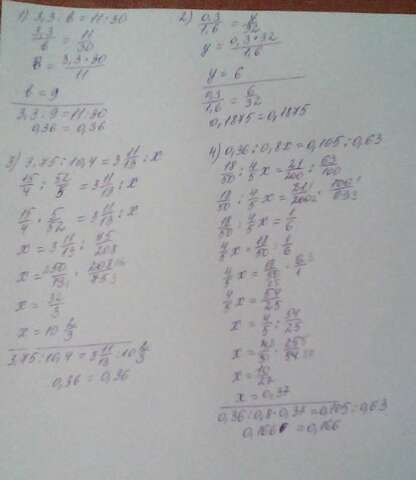 1) 3,3 : в = 11 : 30
3,3/в = 11/30
в = 3,3 * 30/11
в = 9
3,3 : 9 = 11 : 30
0,36 = 0,36
2) 0,3/1,6 = y/32
y = 0,3 * 32/1,6
y = 6
0,3/1,6 = 6/32
0,1875 = 0,1875
3) 3,75 : 10,4 = 3 11/13 : x
15/4 : 52/5 = 3 11/13 : x
15/4 * 5/52 = 3 11/13 : x
x = 3 11/13 : 75/208
x =
x = 32/3
x = 10 2/3
3,75 : 10,4 = 3 11/13 : 10 2/3
0,36 = 0,36
4) 0,36 : 0,8x = 0,105 : 0,63
18/50 : 4/5 x = 21/200 : 63/100
18/50 : 4/5 x =
18/50 : 4/5 x = 1/6
4/5 x = 18/50 : 1/6
4/5 x =
4/5 x = 54/25
x = 4/5 : 54/25
x =
x = 10/27
x = 0,37
0,36 : 0,8 * 0,37 = 0,105 : 0,63
0,166 = 0,166